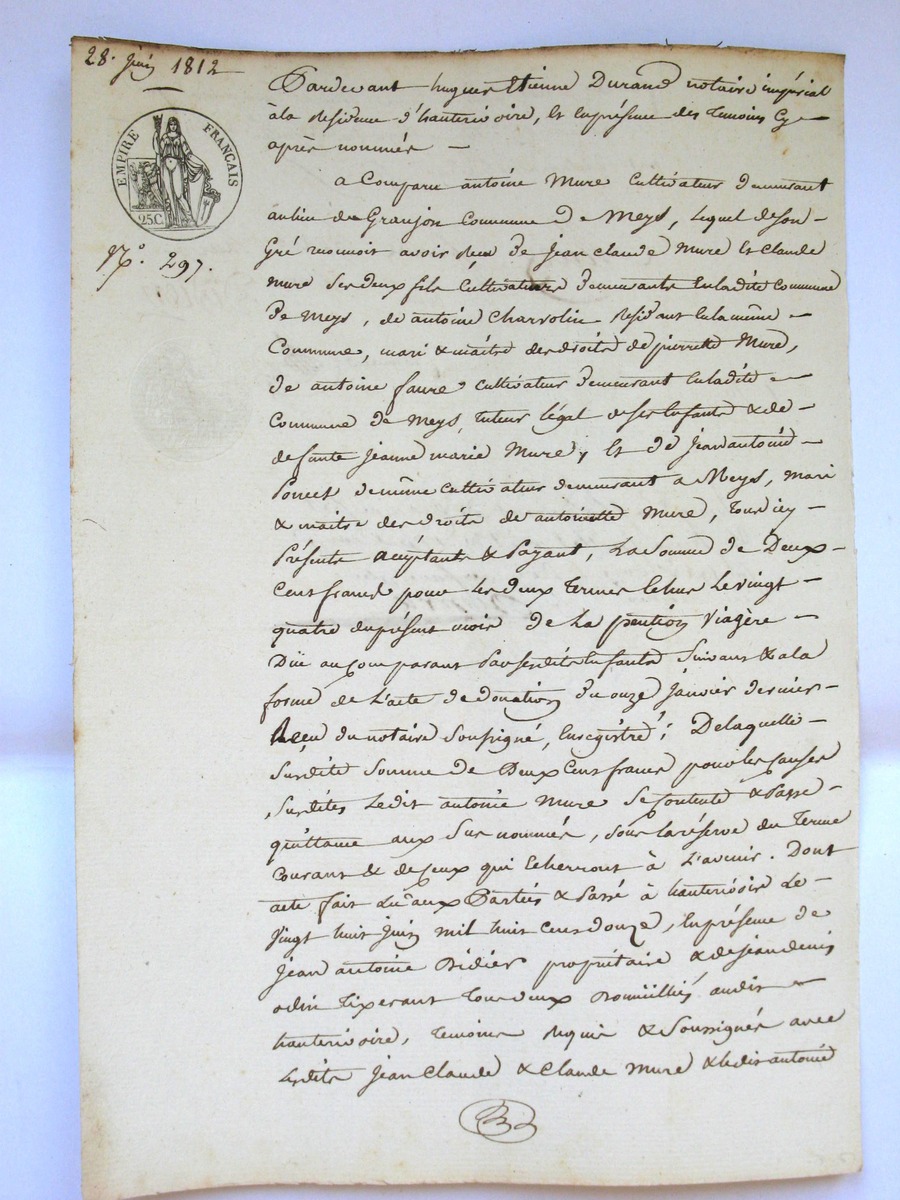 28. juin 1812
EMPIRE FRANÇAIS
25C.
N.° 297.
Pardevant hugues Etienne Durand notaire impérial
à la Residence d'hauterivoire, Et En présence des Temoins Cy-
après nommés —
a Comparu antoine Mure Cultivateur demeurant
au lieu de Granjon Commune De Meys, Lequel de son-
Gré reconnoit avoir Reçu De jean claude Mure Et Claude
Mure Ses deux fils Cultivateurs demeurants En ladite Commune
De Meys, de antoine Charvolin Résidant En la même -
Commune, mari & maître des droits de pierrette Mure,
de antoine faure cultivateur demeurant En ladite -
Commune de Meys, tuteur légal de ses Enfants & de
defunte jeanne marie Mure, Et de jean antoine
Poncet de même cultivateur demeurant a Meys, mari
& maitre des droits de antoinette Mure, tous icy -
Présents acceptants & Payant, La Somme de Deux
Cent francs pour Les deux Termes Echus Le vingt -
quatre du présent mois de La pention Viagère -
Düe au Comparant Par sesdits Enfants Suivant & a la
forme de L'acte de donation du onze janvier dernier
Reçu du notaire Soussigné, Enregistré; De laquelle -
Susdite Somme de Deux Cent francs pour les causes
Susdites Ledit antoine Mure Se Contente & Passe -
quittance aux Sus nommés, Sous la réserve du Terme
Courant & de Ceux qui Echerront à L'avenir. Dont
acte fait Lu aux Parties & Passé à hauterivoire Le -
Vingt huit juin mil huit cent douze, En présence de
Jean antoine Bidier propriétaire & de jean denis
odin Tixerant Tous deux Domiciliés audit -
hauterivoire, Temoins Requis & Soussignés avec
Lesdits jean Claude & Claude Mure & ledit antoine